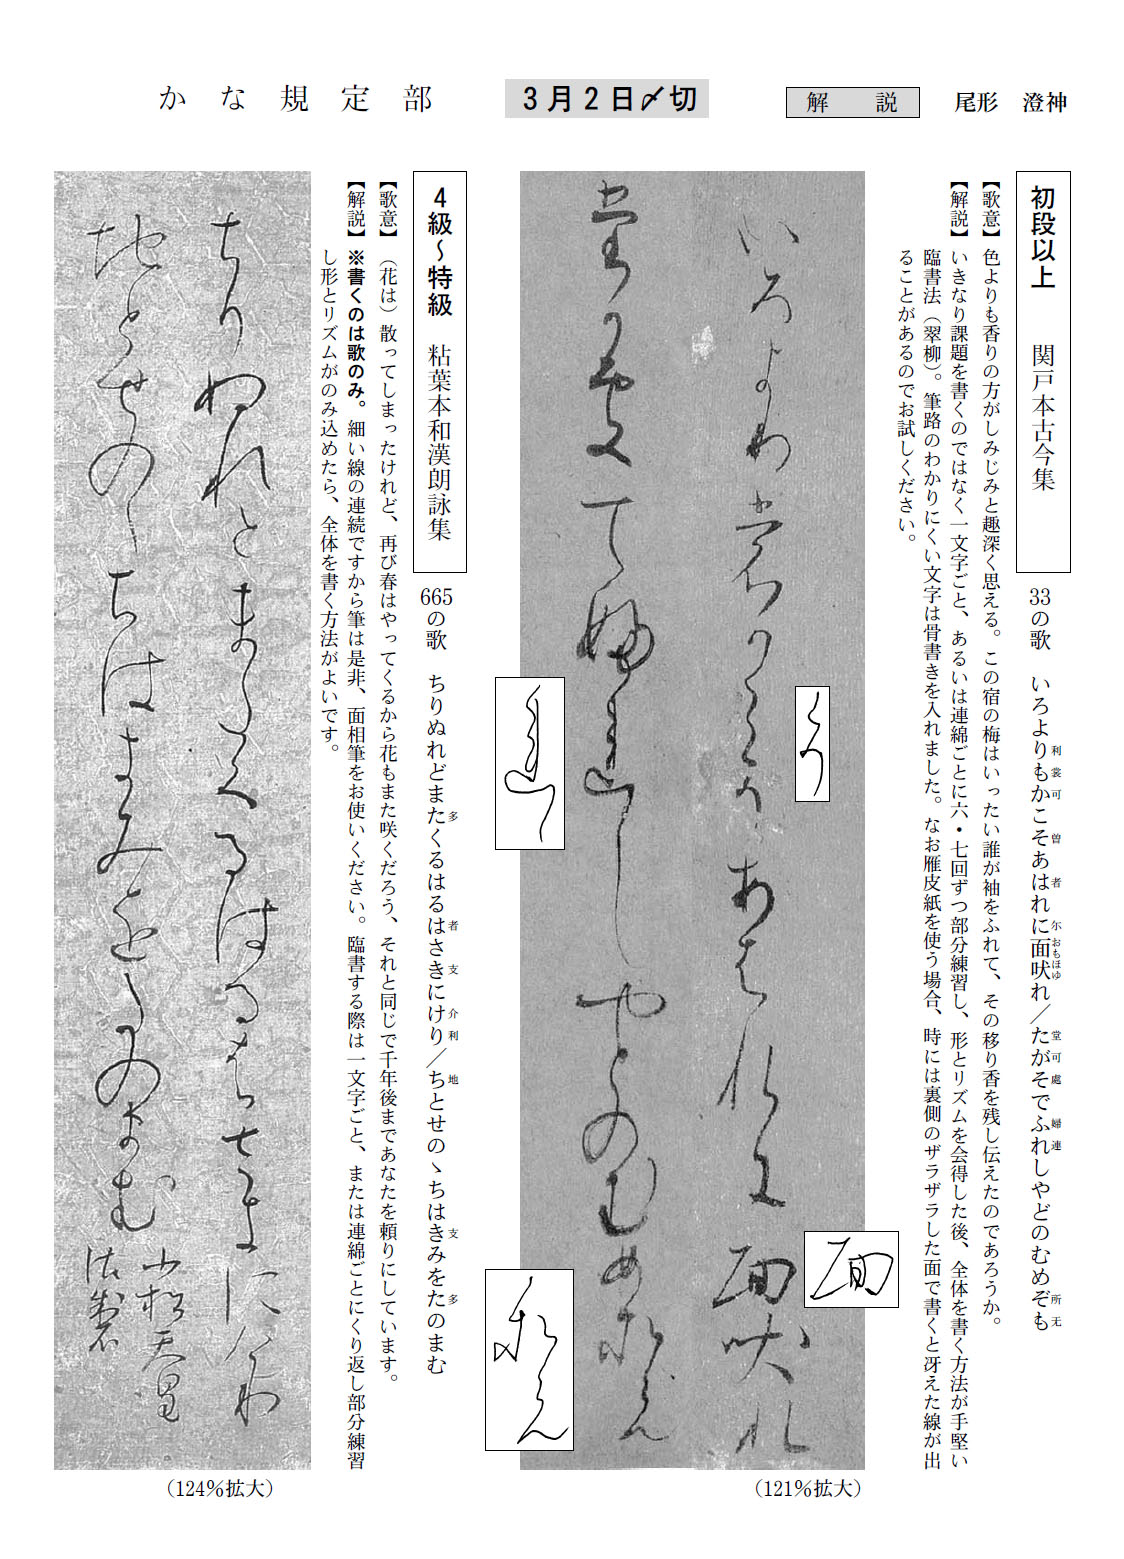 かな規定部
3月2日〆切
解説
尾形 澄神
初段以上 関戸本古今集
33の歌 いろよりもかこそあはれに面吠れ／たがそでふれしやどのむめぞも
利 裳 可 曽 者 尓 おもほゆ 堂 可 處 婦 連 所 无
【歌意】色よりも香りの方がしみじみと趣深く思える。この宿の梅はいったい誰が袖をふれて、その移り香を残し伝えたのであろうか。
【解説】いきなり課題を書くのではなく一文字ごと、あるいは連綿ごとに六・七回ずつ部分練習し、形とリズムを会得した後、全体を書く方法が手堅い
臨書法（翠柳）。筆路のわかりにくい文字は骨書きを入れました。なお雁皮紙を使う場合、時には裏側のザラザラした面で書くと冴えた線が出
ることがあるのでお試しください。
（121%拡大）
4級〜特級 粘葉本和漢朗詠集
665の歌 ちりぬれどまたくるはるはさきにけり／ちとせのゝちはきみをたのまむ
多 者 支 介 利 地 支 多
【歌意】（花は）散ってしまったけれど、再び春はやってくるから花もまた咲くだろう、それと同じで千年後まであなたを頼りにしています。
【解説】※書くのは歌のみ。細い線の連続ですから筆は是非、面相筆をお使いください。臨書する際は一文字ごと、または連綿ごとにくり返し部分練習
し形とリズムがのみ込めたら、全体を書く方法がよいです。
（124%拡大）